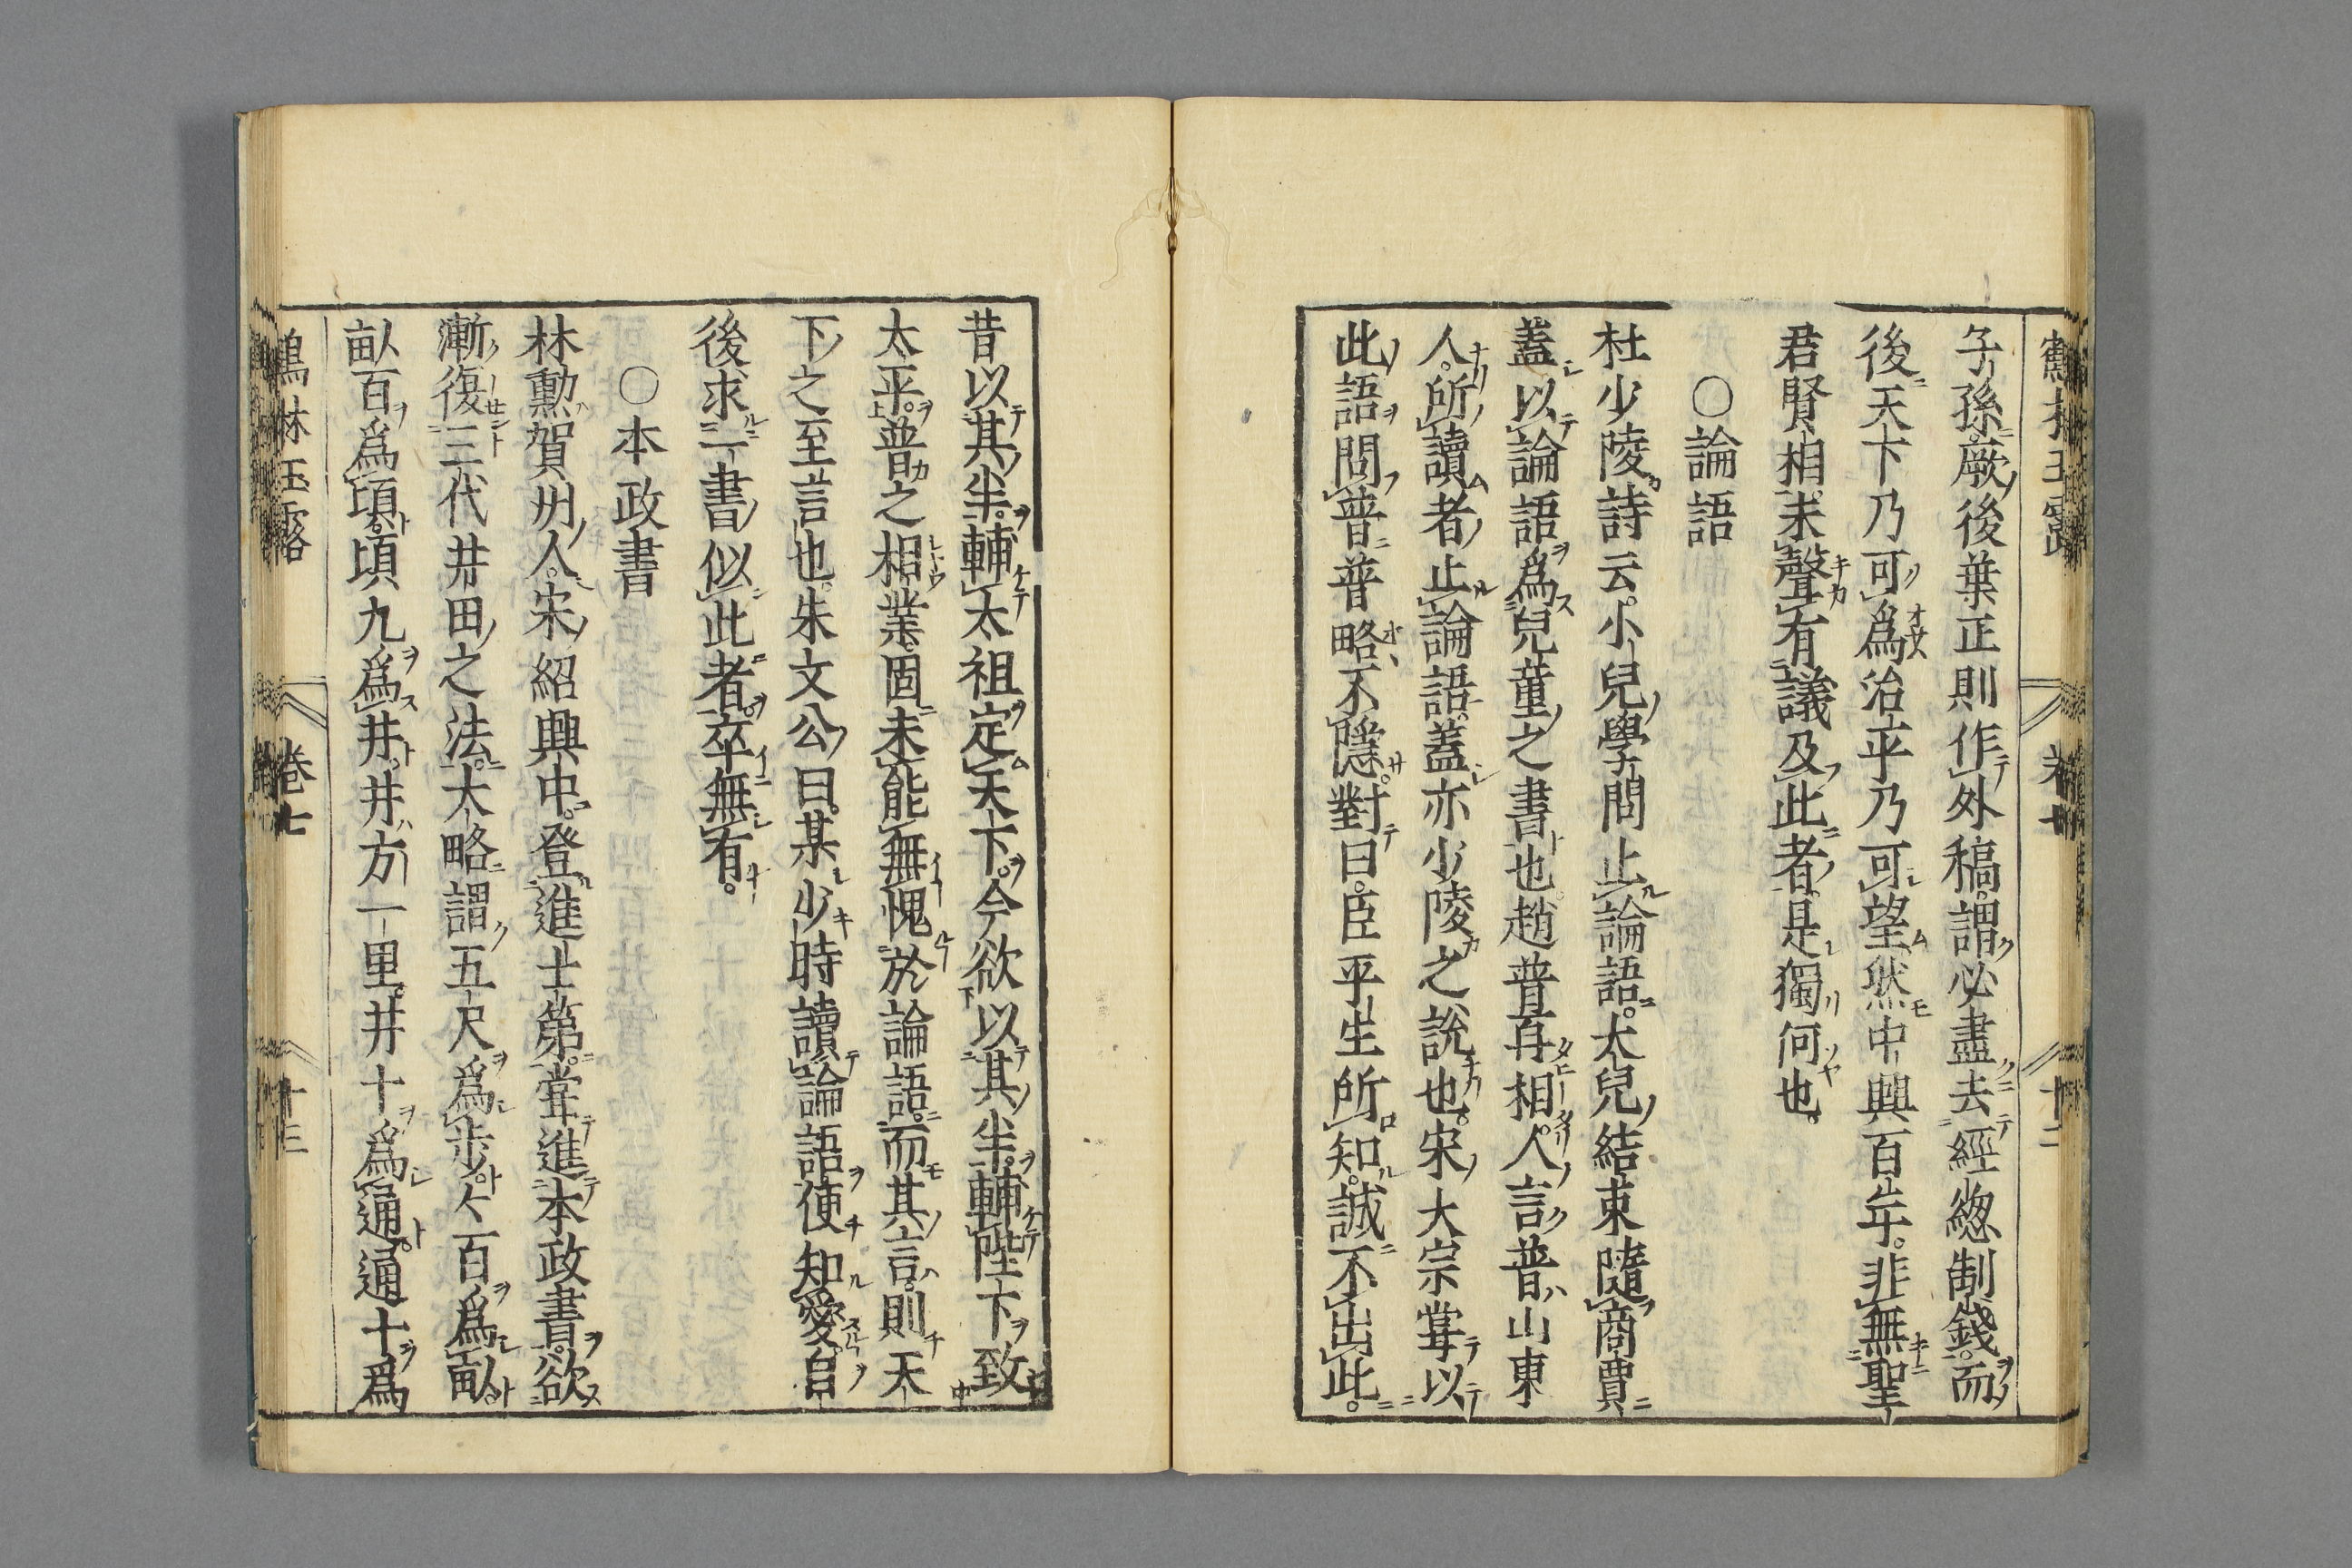 鶴林玉露 卷七 十二
子孫厥後葉正則作外稿謂必盡去經總制錢而
後天下乃可爲治平乃可望然中興百年非無聖
君賢相未聲有議及此者是獨何也
〇論語
杜少陵詩云小兒學問止論語大兒結束隨商賈
蓋以論語爲兒童之書也趙普再相人言普山東
人所讀者止論語蓋亦少陵之說也宋大宗甞以
此語問普普略不隱對曰臣平生所知誠不出此
昔以其半輔太祖定天下今欲以其半輔陛下致
太平普之相業固未能無愧於論語而其言則天
下之至言也朱文公曰某少時讀論語便知愛自
後求一書似此者卒無有
〇本政書
林勳賀州人宋紹興中登進士第甞進本政書欲
漸復三代井田之法大略謂五尺爲歩歩百爲畝
畝百爲頃頃九爲井井方一里井十爲通通十爲
鶴林玉露 卷七 十三